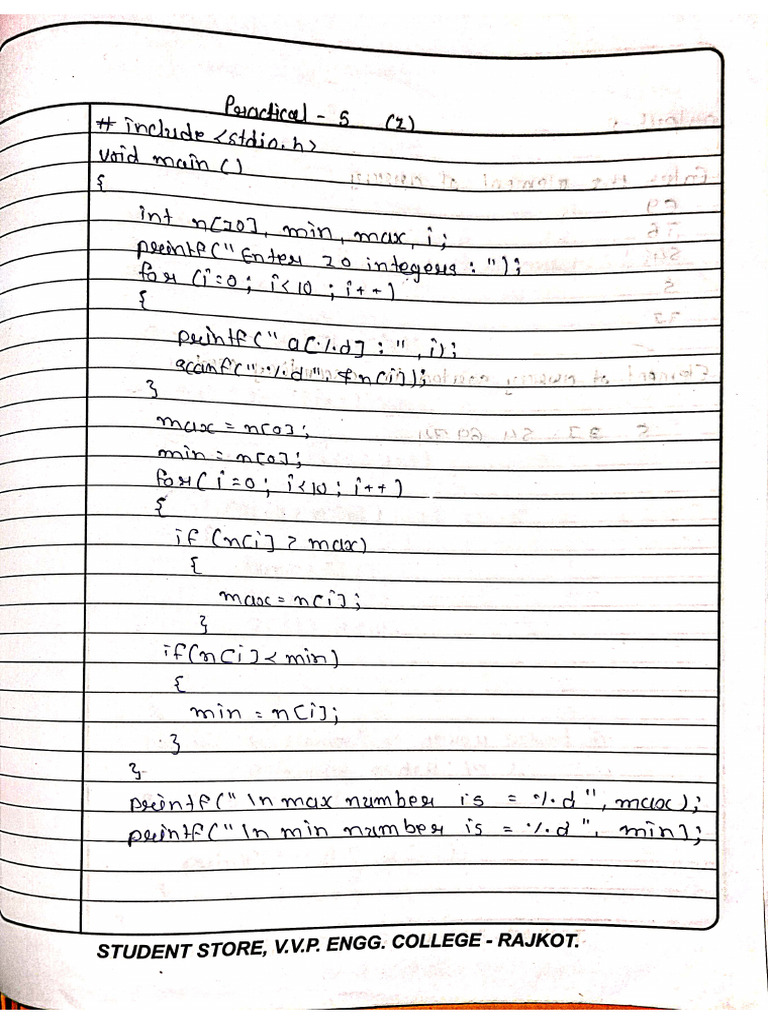 Practical - 5 (2)
# include <stdio.h>
void main ()
{
int n[20], min, max, i;
printf("Enter 20 integers : ");
for (i=0; i<10 ; i++)
{
printf(" a[%d] : ", i);
scanf("%d", &n[i]);
}
max = n[0];
min = n[0];
for(i=0; i<10; i++)
{
if (n[i] > max)
{
max = n[i];
}
if(n[i]<min)
{
min = n[i];
}
}
printf("\n max number is = %d", max);
printf("\n min number is = %d", min);
STUDENT STORE, V.V.P. ENGG. COLLEGE - RAJKOT.